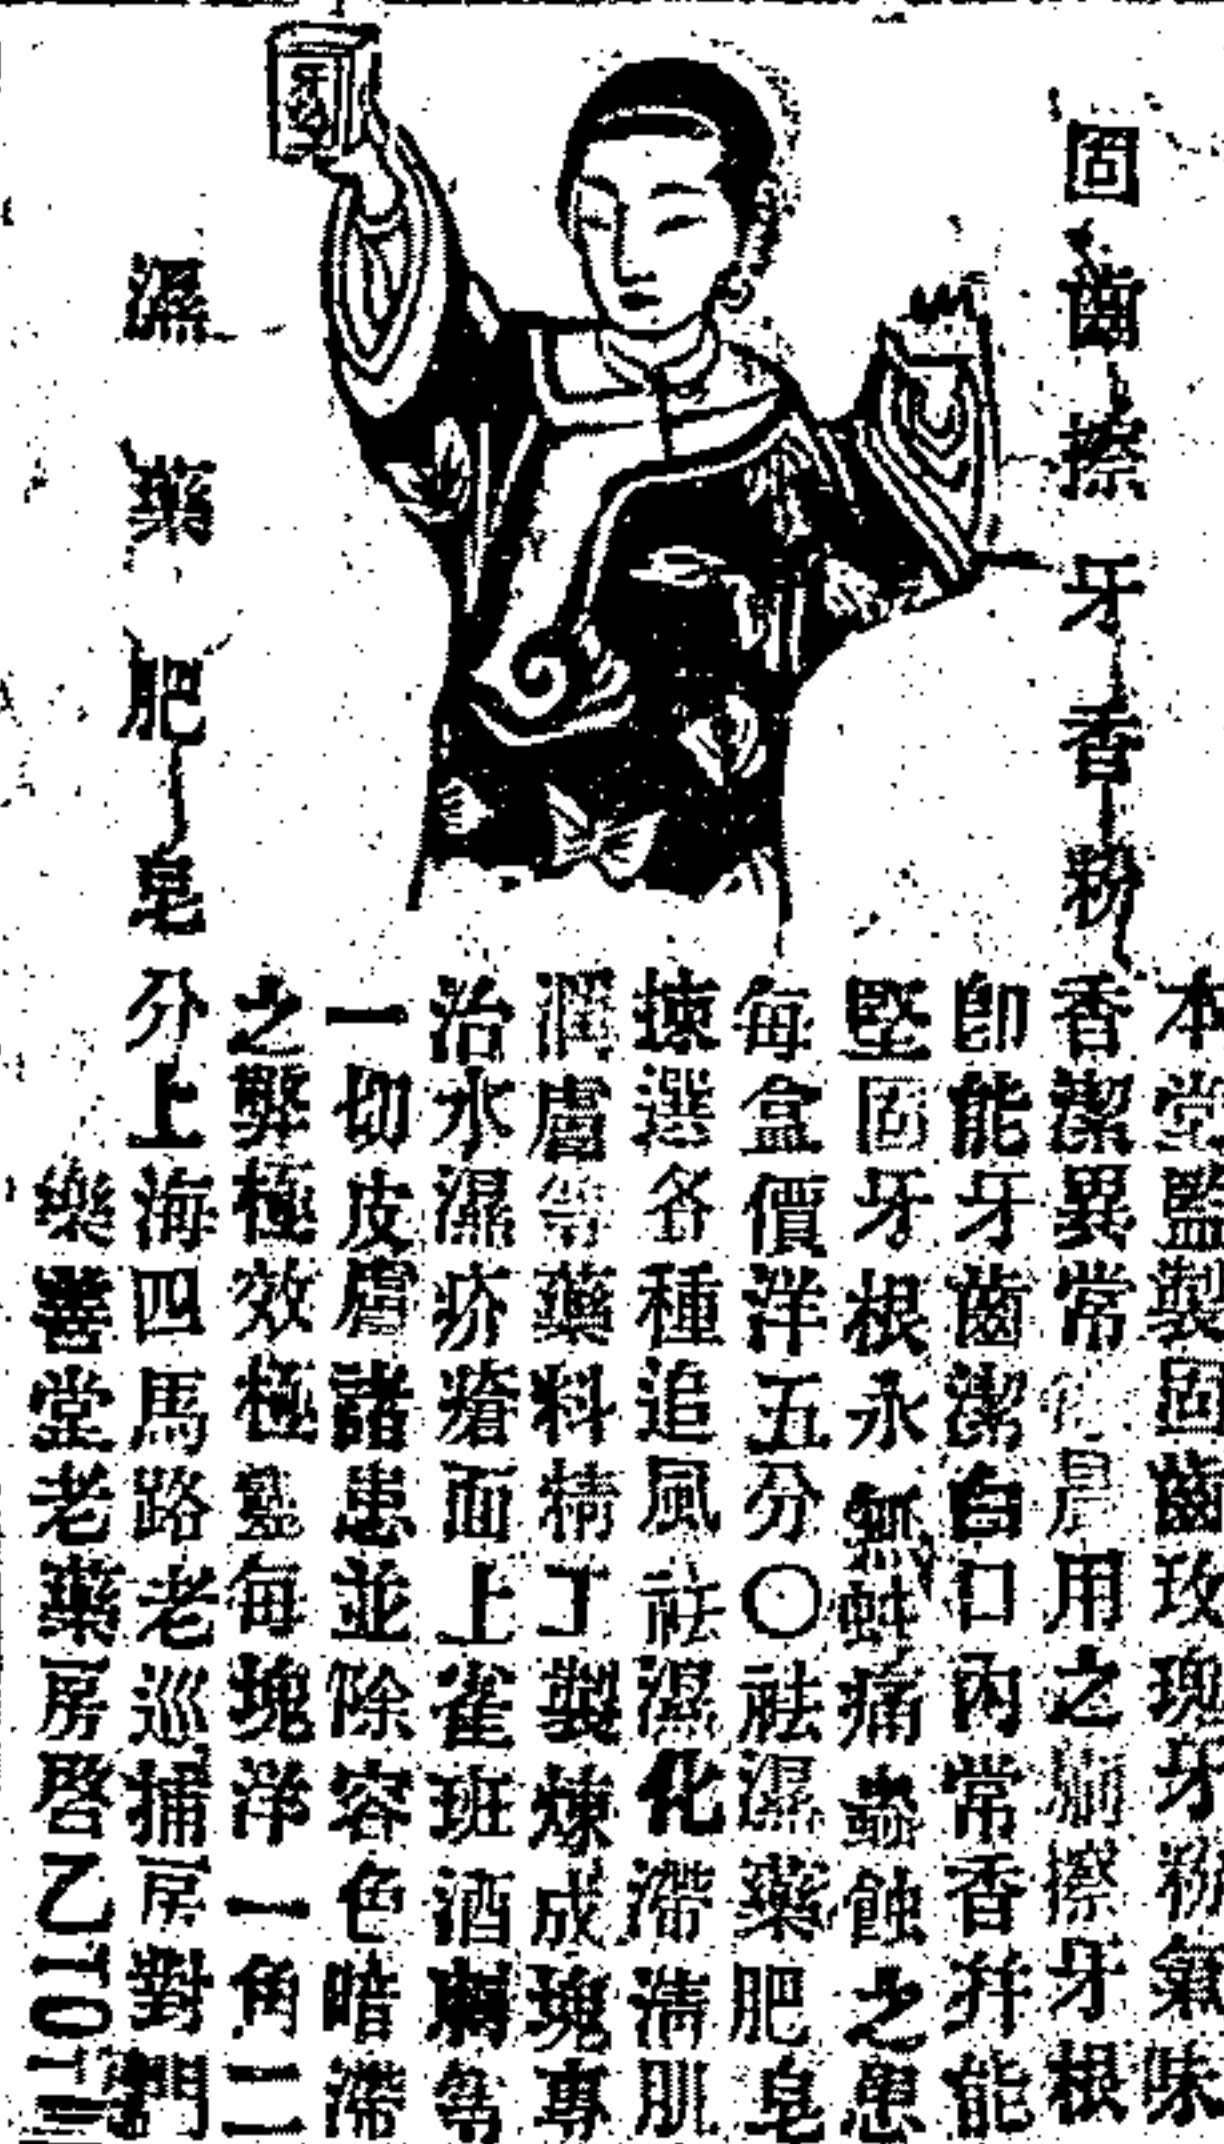 牙粉
固齒擦牙香粉
濕藥肥皂
本堂監製固齒玫瑰牙粉氣味
香潔異常晨用之刷擦牙根
卽能牙齒潔白口內常香幷能
堅固牙根永無蛀痛蟲蝕之患
每盒價洋五分〇祛濕藥肥皂
揀選各種追風祛濕化滯淸肌
潤膚等藥料精工製煉成塊專
治水濕疥瘡面上雀班酒刺等
一切皮膚諸患並除容色暗滯
之弊極效極靈每塊洋一角二
分上海四馬路老巡捕房對門
樂善堂老藥房啓乙10